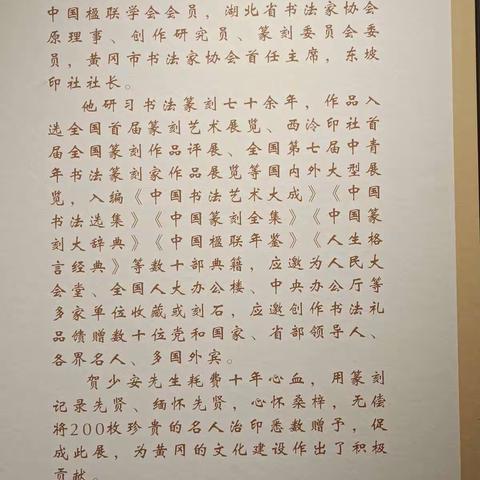 中国楹联学会会员，湖北省书法家协会
原理事、创作研究员、篆刻委员会委
员，黄冈市书法家协会首任主席，东坡
印社社长。
他研习书法篆刻七十余年，作品入
选全国首届篆刻艺术展览、西泠印社首
届全国篆刻作品评展、全国第七届中青
年书法篆刻家作品展览等国内外大型展
览，入编《中国书法艺术大成》《中国
书法选集》《中国篆刻全集》《中国篆
刻大辞典》《中国楹联年鉴》《人生格
言经典》等数十部典籍，应邀为人民大
会堂、全国人大办公楼、中央办公厅等
多家单位收藏或刻石，应邀创作书法礼
品馈赠数十位党和国家、省部领导人、
各界名人、多国外宾。
贺少安先生耗费十年心血，用篆刻
记录先贤、缅怀先贤，心怀桑梓，无偿
将200枚珍贵的名人治印悉数赠予，促
成此展，为黄冈的文化建设作出了积极
贡献。